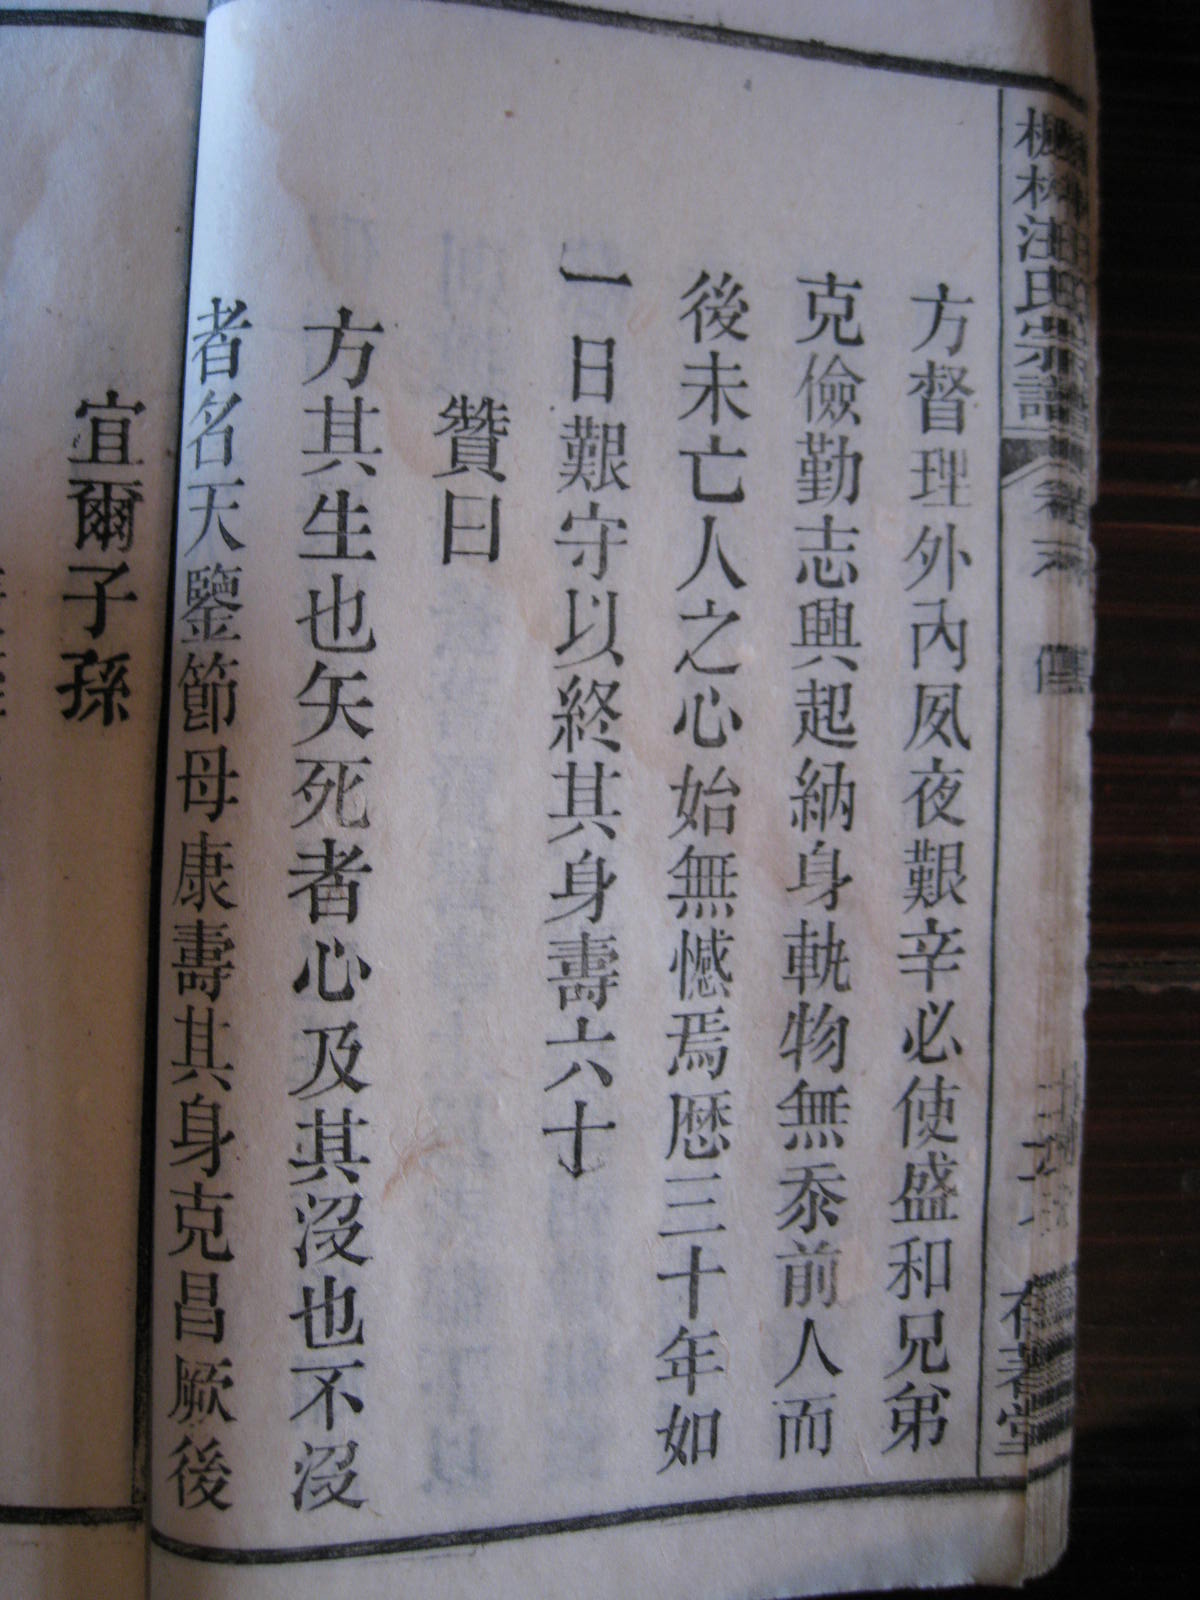 林汪氏宗譜
傳
方督理外內夙夜艱辛必使盛和兄弟
克儉勤志興起納身軌物無忝前人而
後未亡人之心始無憾焉歷三十年如
一日艱守以終其身壽六十
贊曰
方其生也矢死者心及其沒也不沒
者名天鑒節母康壽其身克昌厥後
宜爾子孫